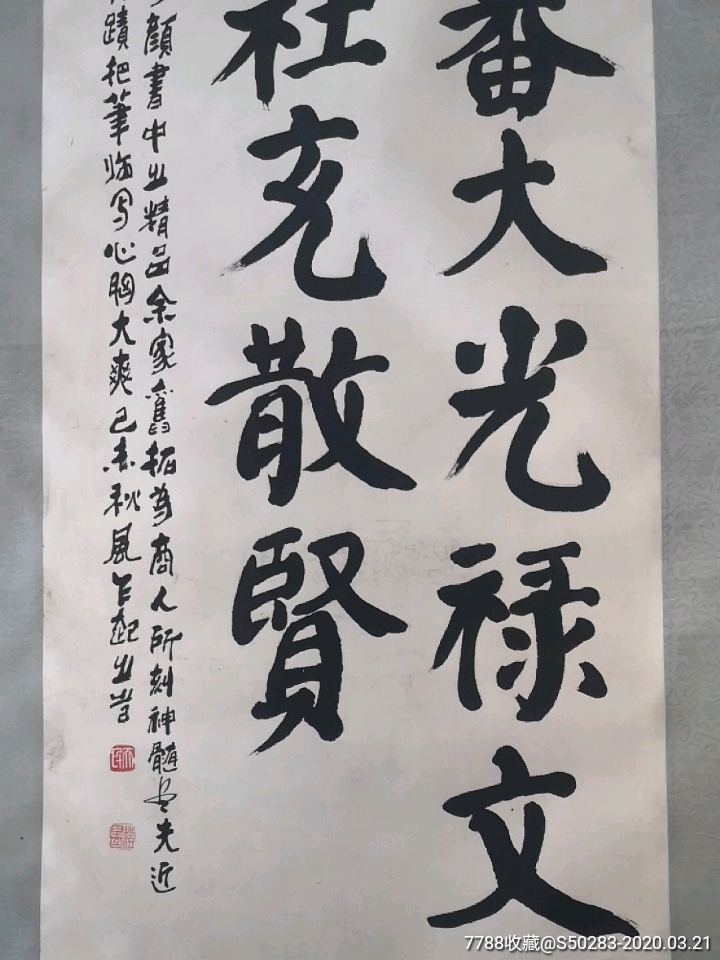 番大光禄文
社充散賢
顏書中之精品余家舊拓為商人所刻神髓盡失近
蹟把筆臨寫心胸大爽己未秋風乍起之時
7788收藏@S50283-2020.03.21